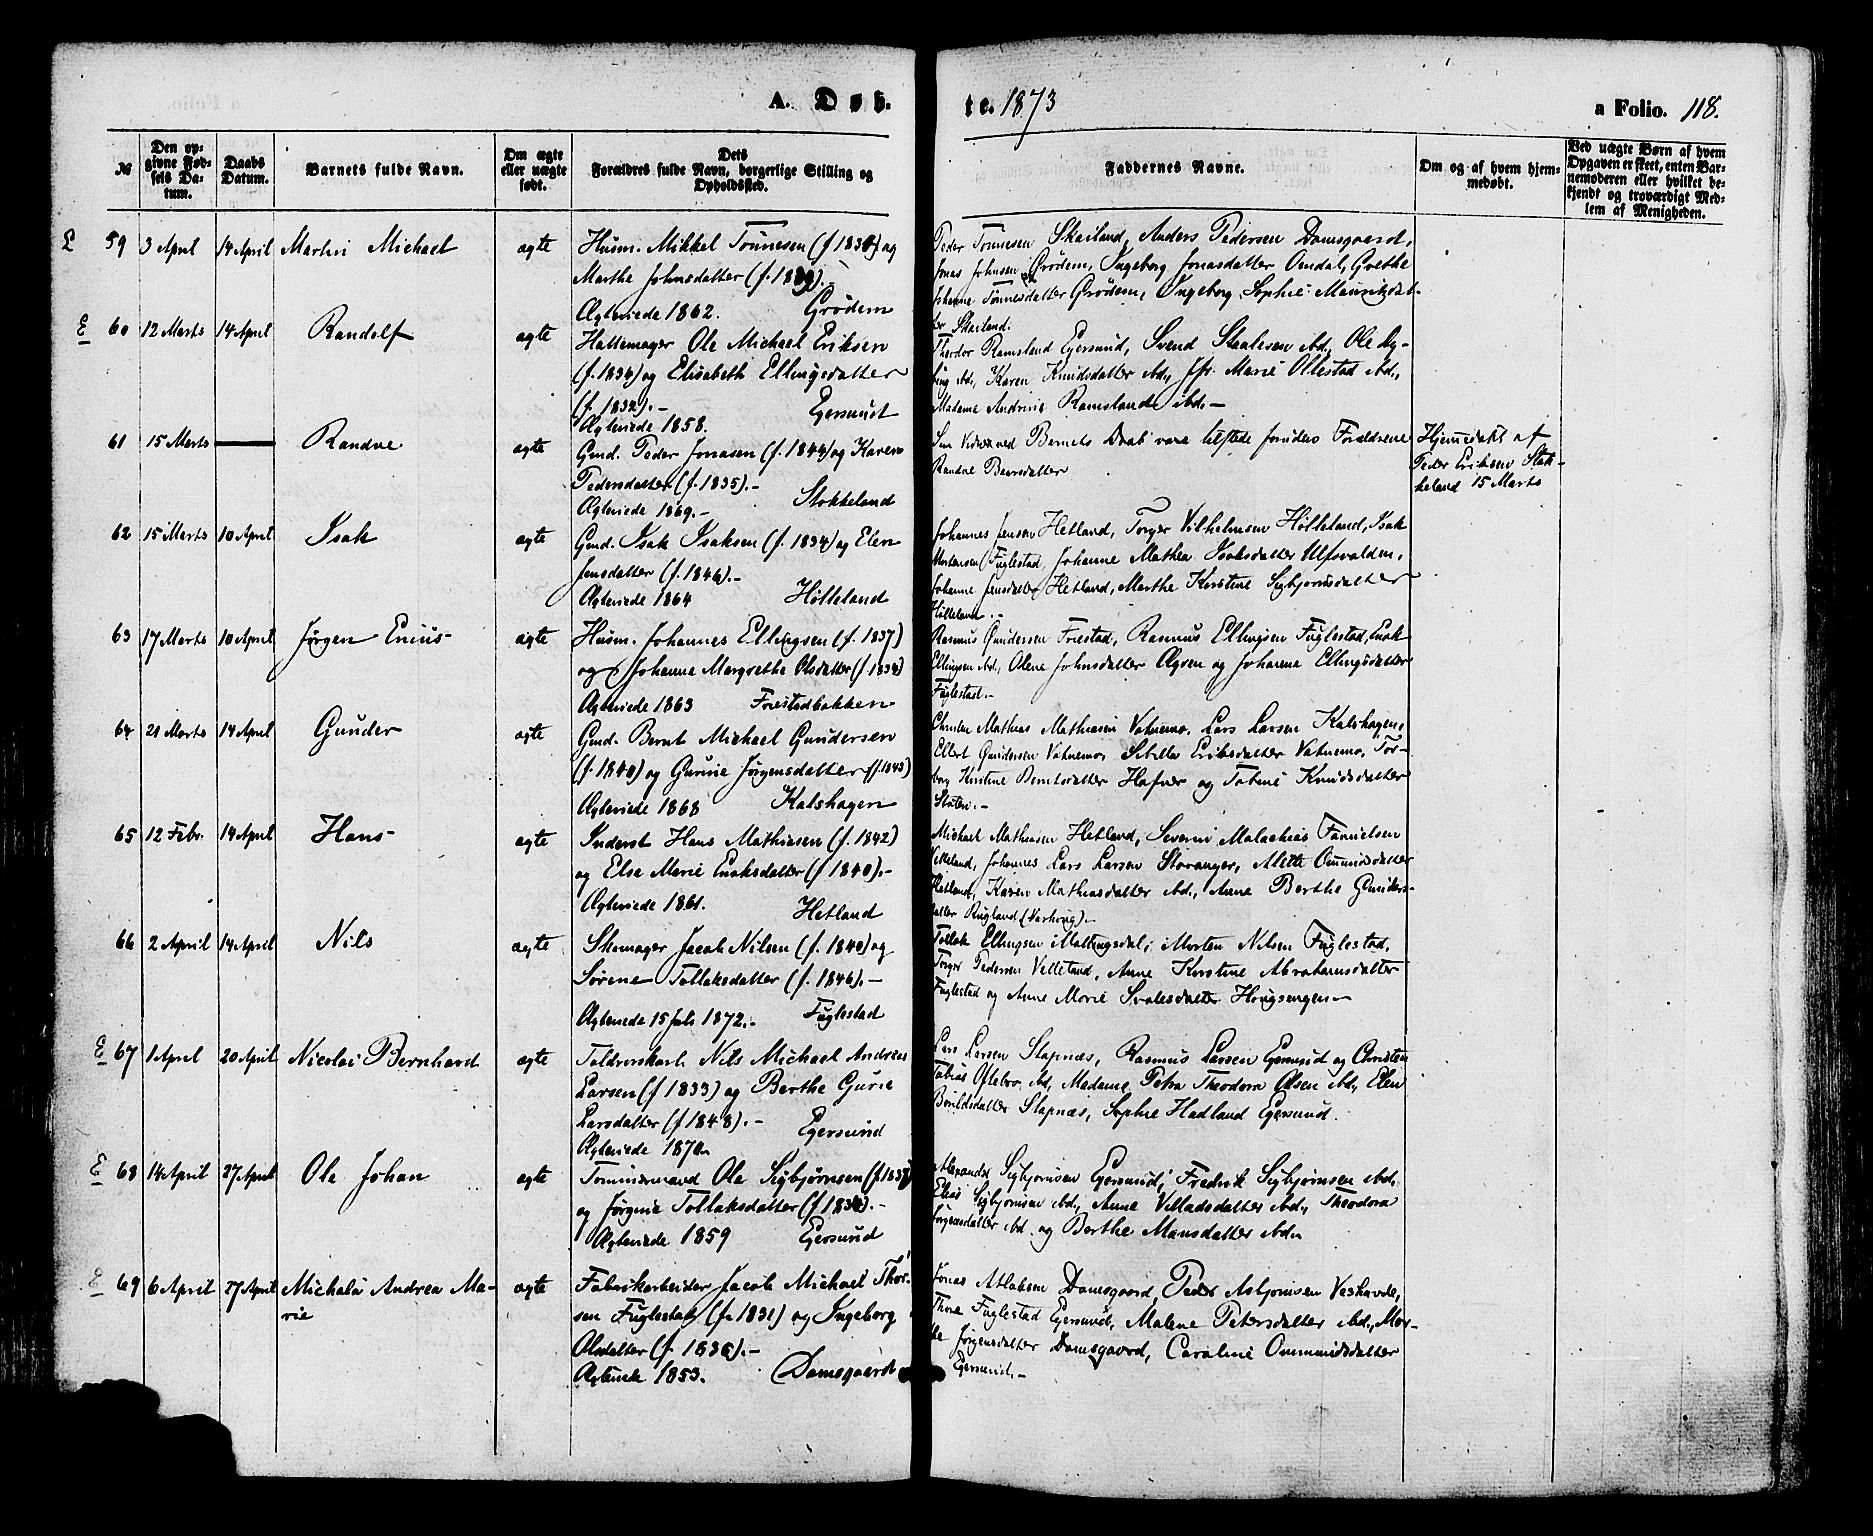 A. Døb- te. 1873
a Folio. 118.
№
Den opgivne Fødsels Datum.
Daabs Datum.
Barnets fulde Navn.
Om ægte eller uægte født.
Dets Forældres fulde Navn, borgerlige Stilling og Opholdssted.
Faddernes Navne.
Om og af hvem hjemmedøbt.
Ved uægte Børn af hvem Opgaven er skeet, enten Barnemoderen eller hvilket bekjendt og troværdigt Medlem af Menigheden.
E 59 3 April 14 April Martin Michael ægte
Husm. Mikkel Tønnesen (f. 1830) og
Marthe Johnsdatter (f. 1839).-
Ægteviede 1862. Grødem
Peder Tønnesen Skailand, Anders Pedersen Damsgaard,
Jonas Johnsen Grødem, Ingeborg Jonasdatter Omdal, Grethe
Johanne Tønnesdatter Grødem, Ingeborg Sophie Mauritzdat-
ter Skailand.
E 60 12 Marts 14 April Randolf ægte
Hattemager Ole Michael Eriksen
(f. 1834) og Elisabeth Ellingsdatter
(f. 1832).- Egersund
Ægteviede 1858.
Theodor Ramsland Egersund, Svend Skaalesen ibd., Ole Ly-
bing ibd., Karen Knudsdatter ibd., Jfr. Marie Ollestad ibd.,
Madame Andrine Ramsland ibd.-
61 15 Marts — Randve ægte
Gmd. Peder Jonasen (f. 1844) og Karen
Pedersdatter (f. 1835).-
Ægteviede 1869.- Stokkeland
Som Vidner ved Barnets Daab vare tilstede foruden Forældrene
Randve Berntsdatter
Hjemmedøbt af
Peder Eriksen Stok-
keland 15 Marts
62 15 Marts 10 April Isak ægte
Gmd. Isak Isaksen (f. 1834) og Elen
Jensdatter (f. 1846).-
Ægteviede 1864 Hølleland
Johannes Jensen Hetland, Torger Vilhelmsen Hølleland, Isak
Mortensen Fuglestad, Johanne Mathea Isaksdatter Ulfsvalden,
Johanne Jensdatter Hetland, Marthe Kirstine Sigbjørnsdatter
Hølleland.-
63 17 Marts 10 April Jørgen Enius ægte
Husm. Johannes Ellingsen (f. 1837)
og Johanna Margrethe Olsdatter (f. 1834)
Ægteviede 1863 Frestadbakken
Rasmus Gundersen Frestad, Rasmus Ellingsen Fuglestad, Enok
Ellingsen ibd., Olene Johnsdatter Øgreen og Johanna Ellingsdatter
Fuglestad.-
64 21 Marts 14 April Gunder ægte
Gmd. Bernt Michael Gundersen
(f. 1840) og Gurine Jørgensdatter (f. 1843)
Ægteviede 1868 Kalshagen
Christen Mathias Mathiasen Vatnemo, Lars Larsen Kalshagen,
Ellert Gundersen Vatnemo, Sibille Eriksdatter Vatnemo, Tor-
borg Kirstine Berntsdatter Hafsøe og Tobine Knudsdatter
Slaten.-
65 12 Febr. 14 April Hans ægte
Inderst Hans Mathiasen (f. 1842)
og Else Marie Enoksdatter (f 1840).-
Ægteviede 1861. Hetland
Michael Mathiasen Hetland, Severin Malachias Tønnesen
Velleland, Johannes Lars Larsen Stavanger, Mette Ommundsdatter
Hetland, Karen Mathiasdatter ibd., Anne Berthe Gunders-
datter Rugland (Varhoug).-
66 2 April 14 April Nils ægte
Skomager Jacob Nilsen (f. 1840) og
Sørine Tollaksdatter (f. 1846).-
Ægteviede 15 Juli 1872.- Fuglestad
Tollak Ellingsen Mattingsdal, Morten Nilsen Fuglestad,
Torger Pedersen Velleland, Anne Kirstine Abrahamsdatter
Fuglestad og Anne Marie Svalesdatter Hougsengen.-
E 67 1 April 20 April Nicolai Bernhard ægte
Toldrorskarl Nils Michael Andreas
Larsen (f 1833) og Berthe Gurie
Larsdatter (f 1848).- Egersund
Ægteviede 1870.
Lars Larsen Slapnæs, Rasmus Larsen Egersund og Christen
Tobias Oftebro ibd., Madame Petra Theodora Olsen ibd., Elen
Beruldsdatter Slapnæs, Sophie Hadland Egersund.
E 68 14 April 27 April Ole Johan ægte
Tømmermand Ole Sigbjørnsen (f. 1837)
og Jørgine Tollaksdatter (f 1836).-
Ægteviede 1859 Egersund
Alexander Sigbjørnsen Egersund, Fredrik Sigbjørnsen ibd.,
Elias Sigbjørnsen ibd., Anne Villadsdatter ibd., Theodora
Jørgensdatter ibd. og Berthe Mansdatter ibd.
E 69 6 April 27 April Michala Andrea Ma-
rie ægte
Fabrikarbeider Jacob Michael Thor-
sen Fuglestad (f. 1831) og Ingeborg
Olsdatter (f. 1836).-
Ægteviede 1853. Damsgaard
Jonas Atlaksen Damsgaard, Peder Asbjørnsen Veshavde,
Thore Fuglestad Egersund, Malene Petersdatter ibd., Mar-
the Jørgensdatter Damsgaard, Caroline Ommundsdatter
Egersund.-